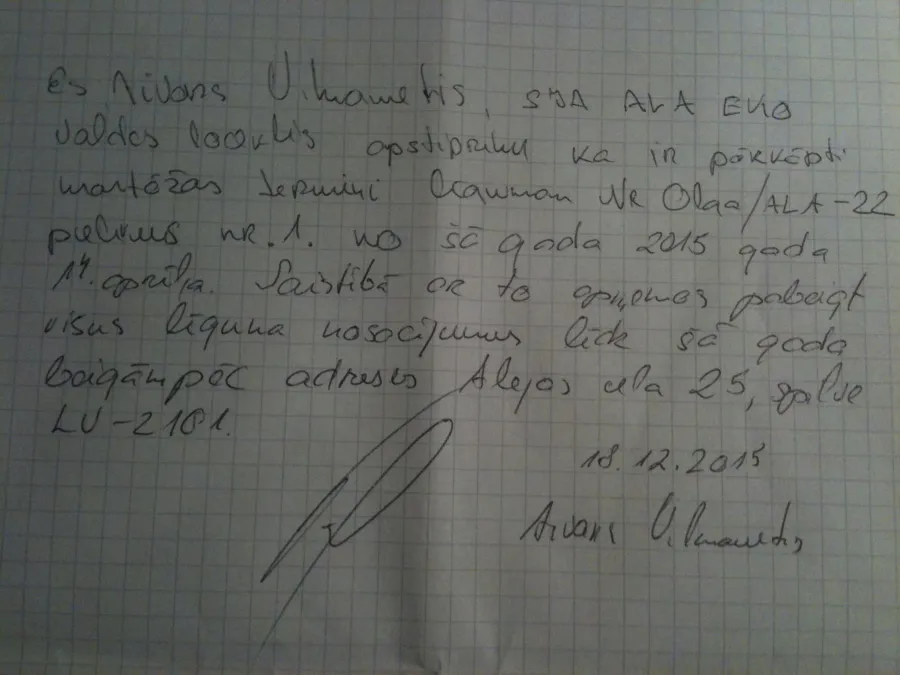 Es Aivars Vilmanetis, SIA ALA EKO
valdes loceklis apstiprinu ka ir pārkāpti
montāžas termiņi Nr Olga/ALA-22
pielikums nr.1. no šā gada 2015 gada
14. aprīļa. Saistībā ar to apņemos pabeigt
visus līguma nosacījumus līdz šā gada
beigām pēc adreses Alejas iela 25,
LV-2101.
18.12.2015
Aivars Vilmanetis